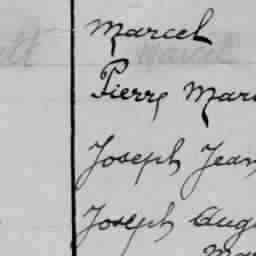 Marcel
Pierre Mar
Joseph Jean
Joseph Aug